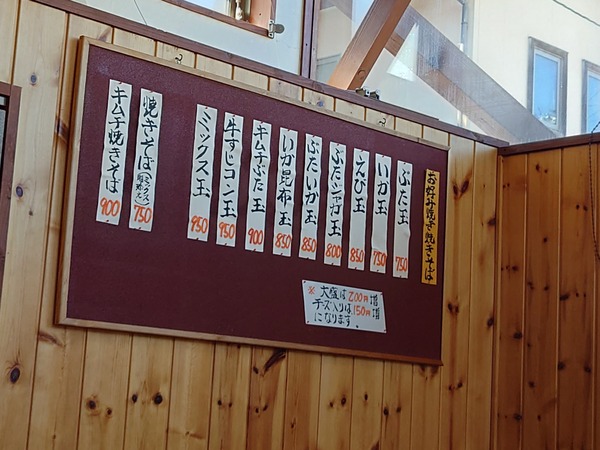 お好み焼き焼きそば
ぶた玉 750
いか玉 750
えび玉 850
ぶたジャガ玉 800
ぶたいか玉 850
いか昆布玉 850
キムチぶた玉 900
牛すじコン玉 950
ミックス玉 950
焼きそば(ミックス 750
キムチ焼きそば 900
※大盛は200円増
チーズ入りは150円増
になります。